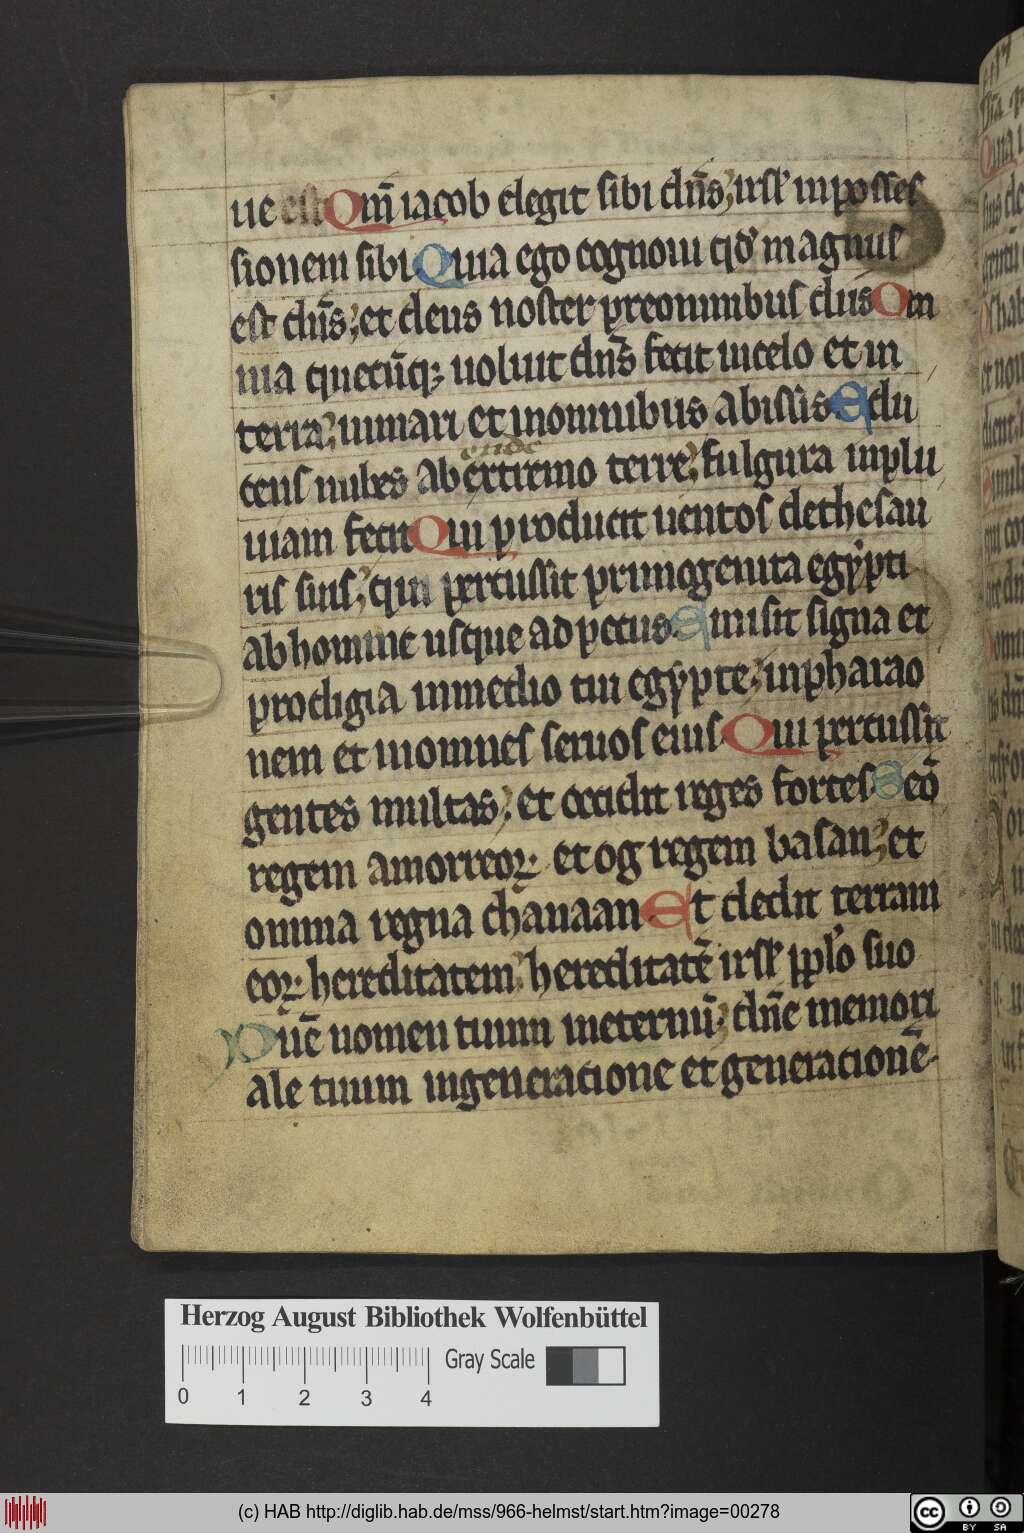 ue est Qm̄ iacob elegit sibi dn̄s; irsł inposses
sionem sibi Quia ego cognoui qd' magnus
est dn̄s; et deus noster preomnibus diis Om
nia quecūq; uoluit dn̄s fecit incelo et in
terra; inmari et inomnibus abissis Edu
cens nubes ab extremo terre; fulgura inplu
uiam fecit Qui producit uentos dethesau
ris suis; qui percussit primogenita egẏpti
ab homine usque ad pecus. Emisit signa et
prodigia inmedio tui egẏpte; inpharao
nem et inomnes seruos eius. Qui percussit
gentes multas; et occidit reges fortes. Seō
regem amorreoꝝ. et og regem basan; et
omnia regna chanaan Et dedit terram
eoꝝ hereditatem; hereditatē irsł pplo suo
Dn̄e nomen tuum ineternū; dn̄e memori
ale tuum ingeneratione et generationē.
Herzog August Bibliothek Wolfenbüttel
Gray Scale
0 1 2 3 4
(c) HAB http://diglib.hab.de/mss/966-helmst/start.htm?image=00278
cc BY SA